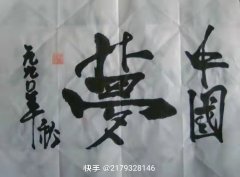 中國
夢
一九九〇年秋
快手 @2179328146